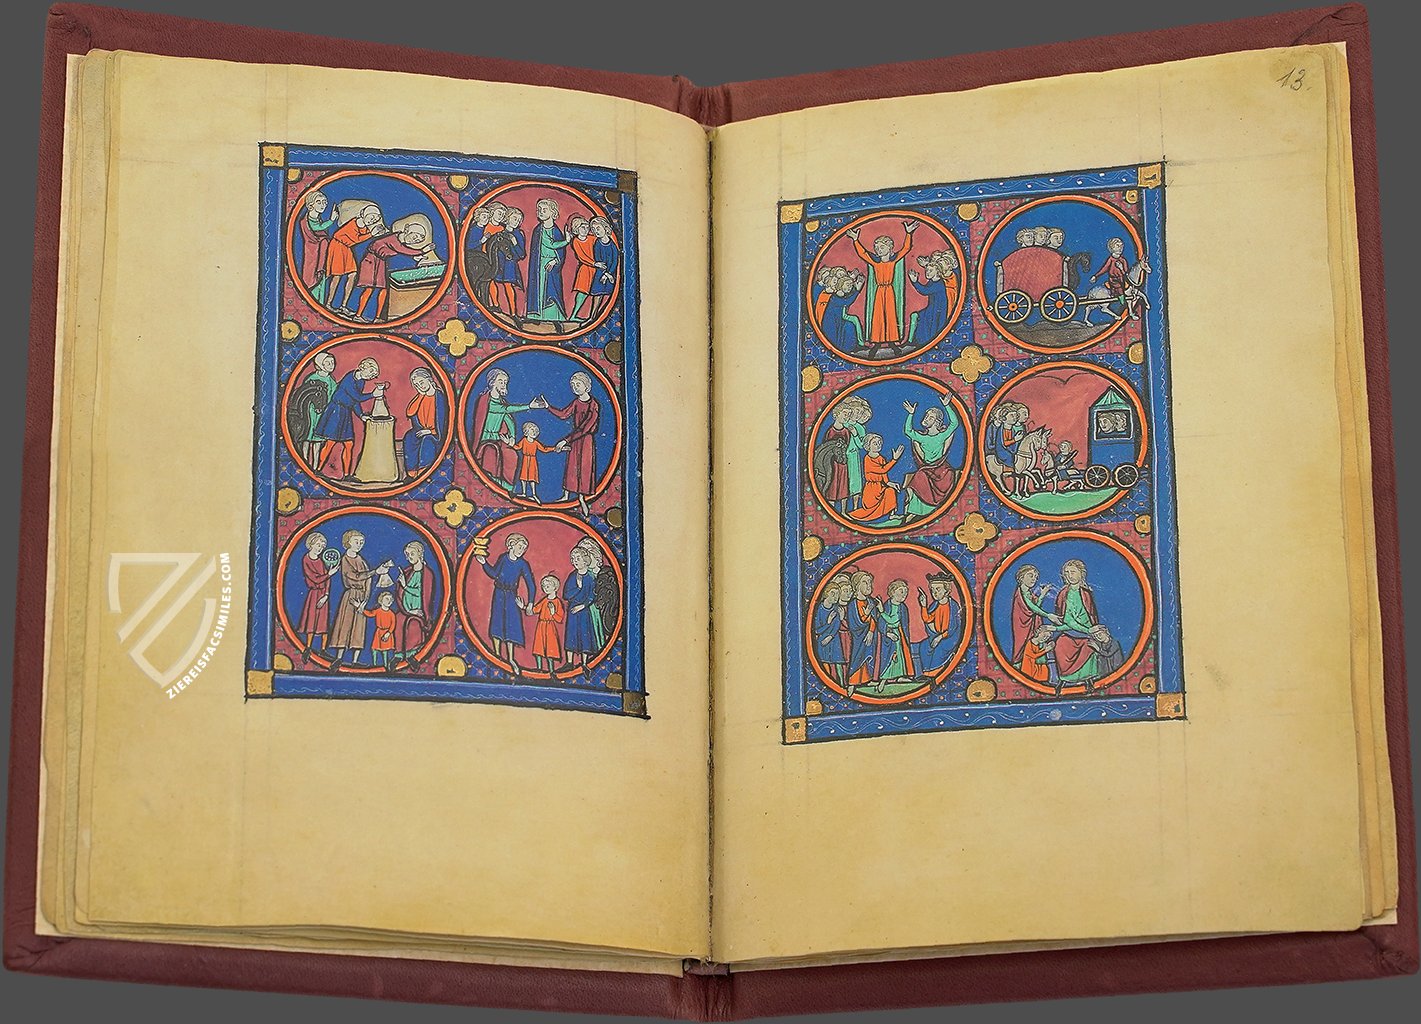 13.
ZIEREISFACSIMILES.COM